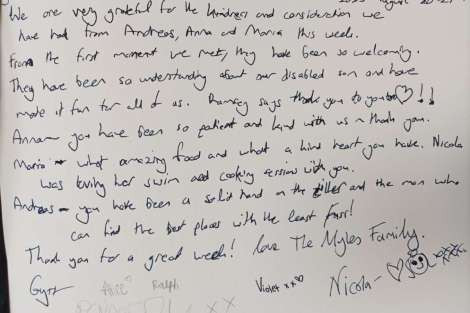 We are very grateful for the kindness and consideration we
have had from Andreas, Anna and Maria this week.
From the first moment we met, they have been so welcoming.
They have been so understanding about our disabled son and have
made it fun for all of us. says thank you to you !!
Anna you have been so patient and kind with us ~ thank you.
Maria ~ what amazing food and what a kind heart you have. Nicola
was loving her swim and cooking session with you.
Andreas ~ you have been a solid hand on the tiller and the man who
can find the best places with the least fuss!
Thank you for a great week! love The Myles Family.
Alice Ralph Violet xx Nicola